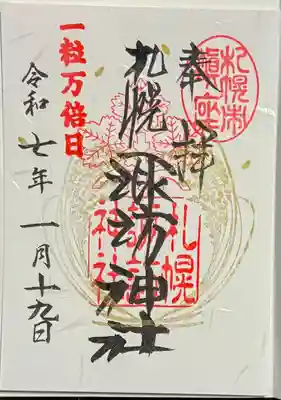 鎭座
奉拝
札幌諏訪神社
札幌
諏訪
神社
一粒万倍日
令和七年一月十九日